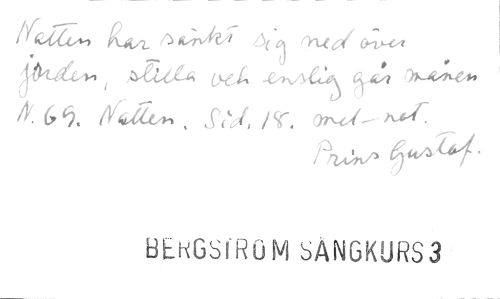 Natten har sänkt sig ned över
jorden, stilla och enslig går månen
N. 69. Natten. Sid. 18. mel-not.
Prins Gustaf.
BERGSTRÖM SÅNGKURS 3